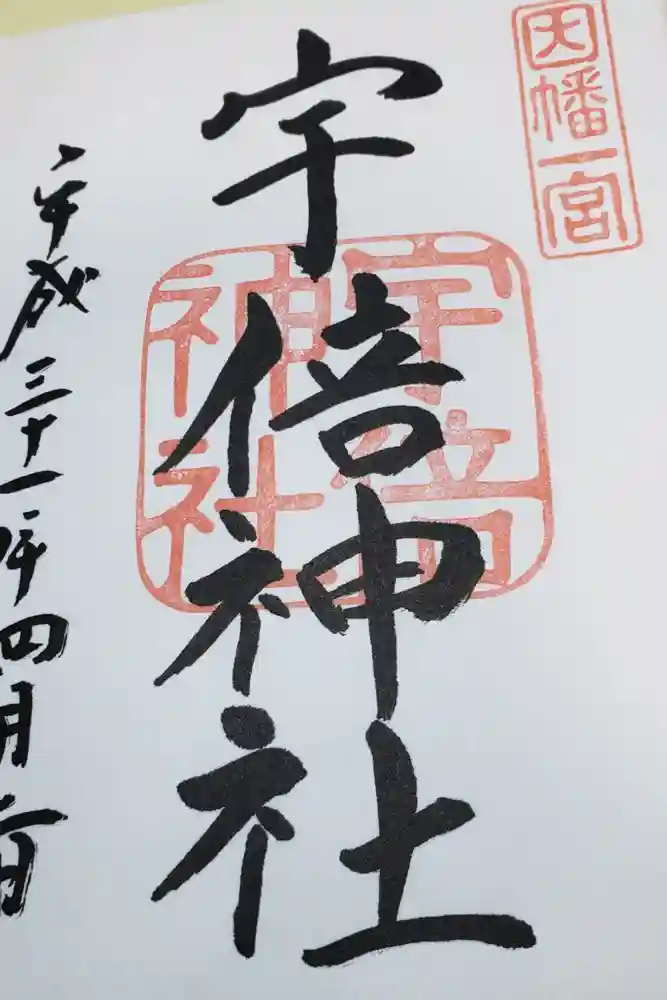 因幡一宮
宇倍神社
宇倍
神社
平成三十一年四月二日